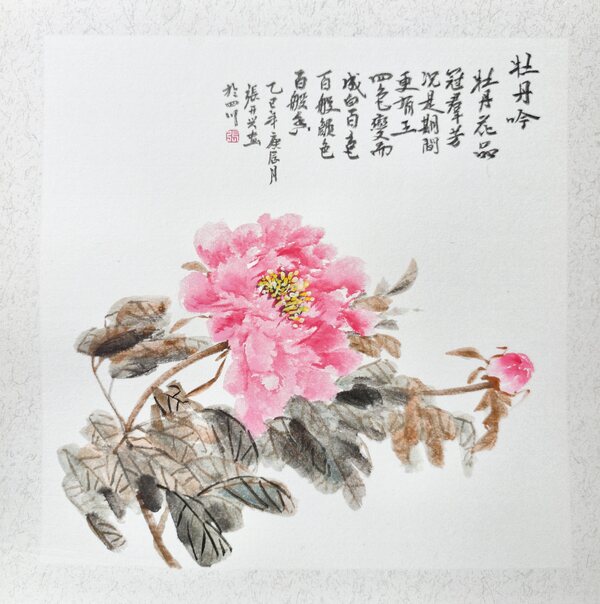 牡丹吟
牡丹花品
冠羣芳
况是期間
更有王
四色變而
成白百色
百般颜色
百般香
乙巳年庚辰月
張开兴画
於四川